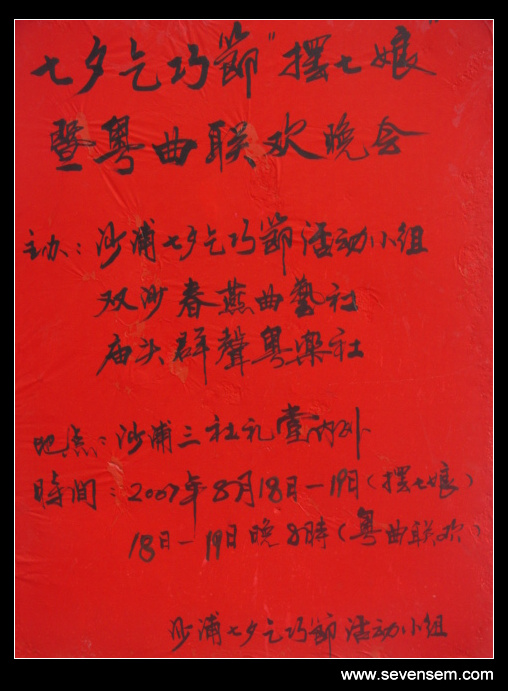 七夕乞巧節“摆七娘”
暨粤曲联欢晚会
主办：沙浦七夕乞巧節活动小组
双沙春燕曲藝社
庙头群聲粤乐社
地点：沙浦三社礼堂内外
時间：2007年8月18日一19日（摆七娘）
18日一19日晚8時（粤曲联欢）
沙浦七夕乞巧節活动小组
www.sevensem.com